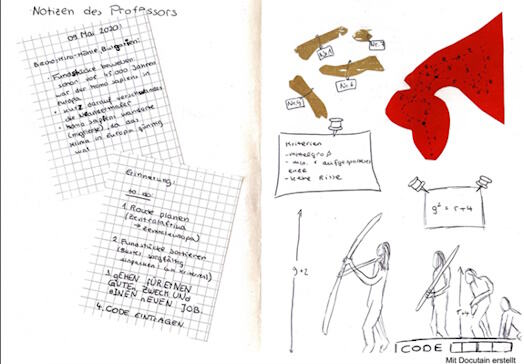 Notizen des Professors
09 Mai 2020
Höhle, Bulgarien:
• Fundstücke beweisen
schon vor 45,000 Jahren
war der homo sapiens in
Europa
• kurz darauf
die Neandertaler
• homo sapiens wanderte
da das
Klima in Europa günstig
war
Erinnerung:
to do:
1. Route planen
(Zentralafrika
→ Zentraleuropa)
2. Fundstücke sortieren
sorgfältig
3. GEHEN FÜR EINEN
GUTEN ZWECK UND
EINEN NEUEN JOB.
4. CODE EINTRAGEN
Nr.1
Nr.7
Nr.6
Nr.4
Kriterien
- mittelgroß
- aufgespaltenes
Ende
- keine Risse
g² = r+4
g+2
r+4
CODE
Mit Docutain erstellt